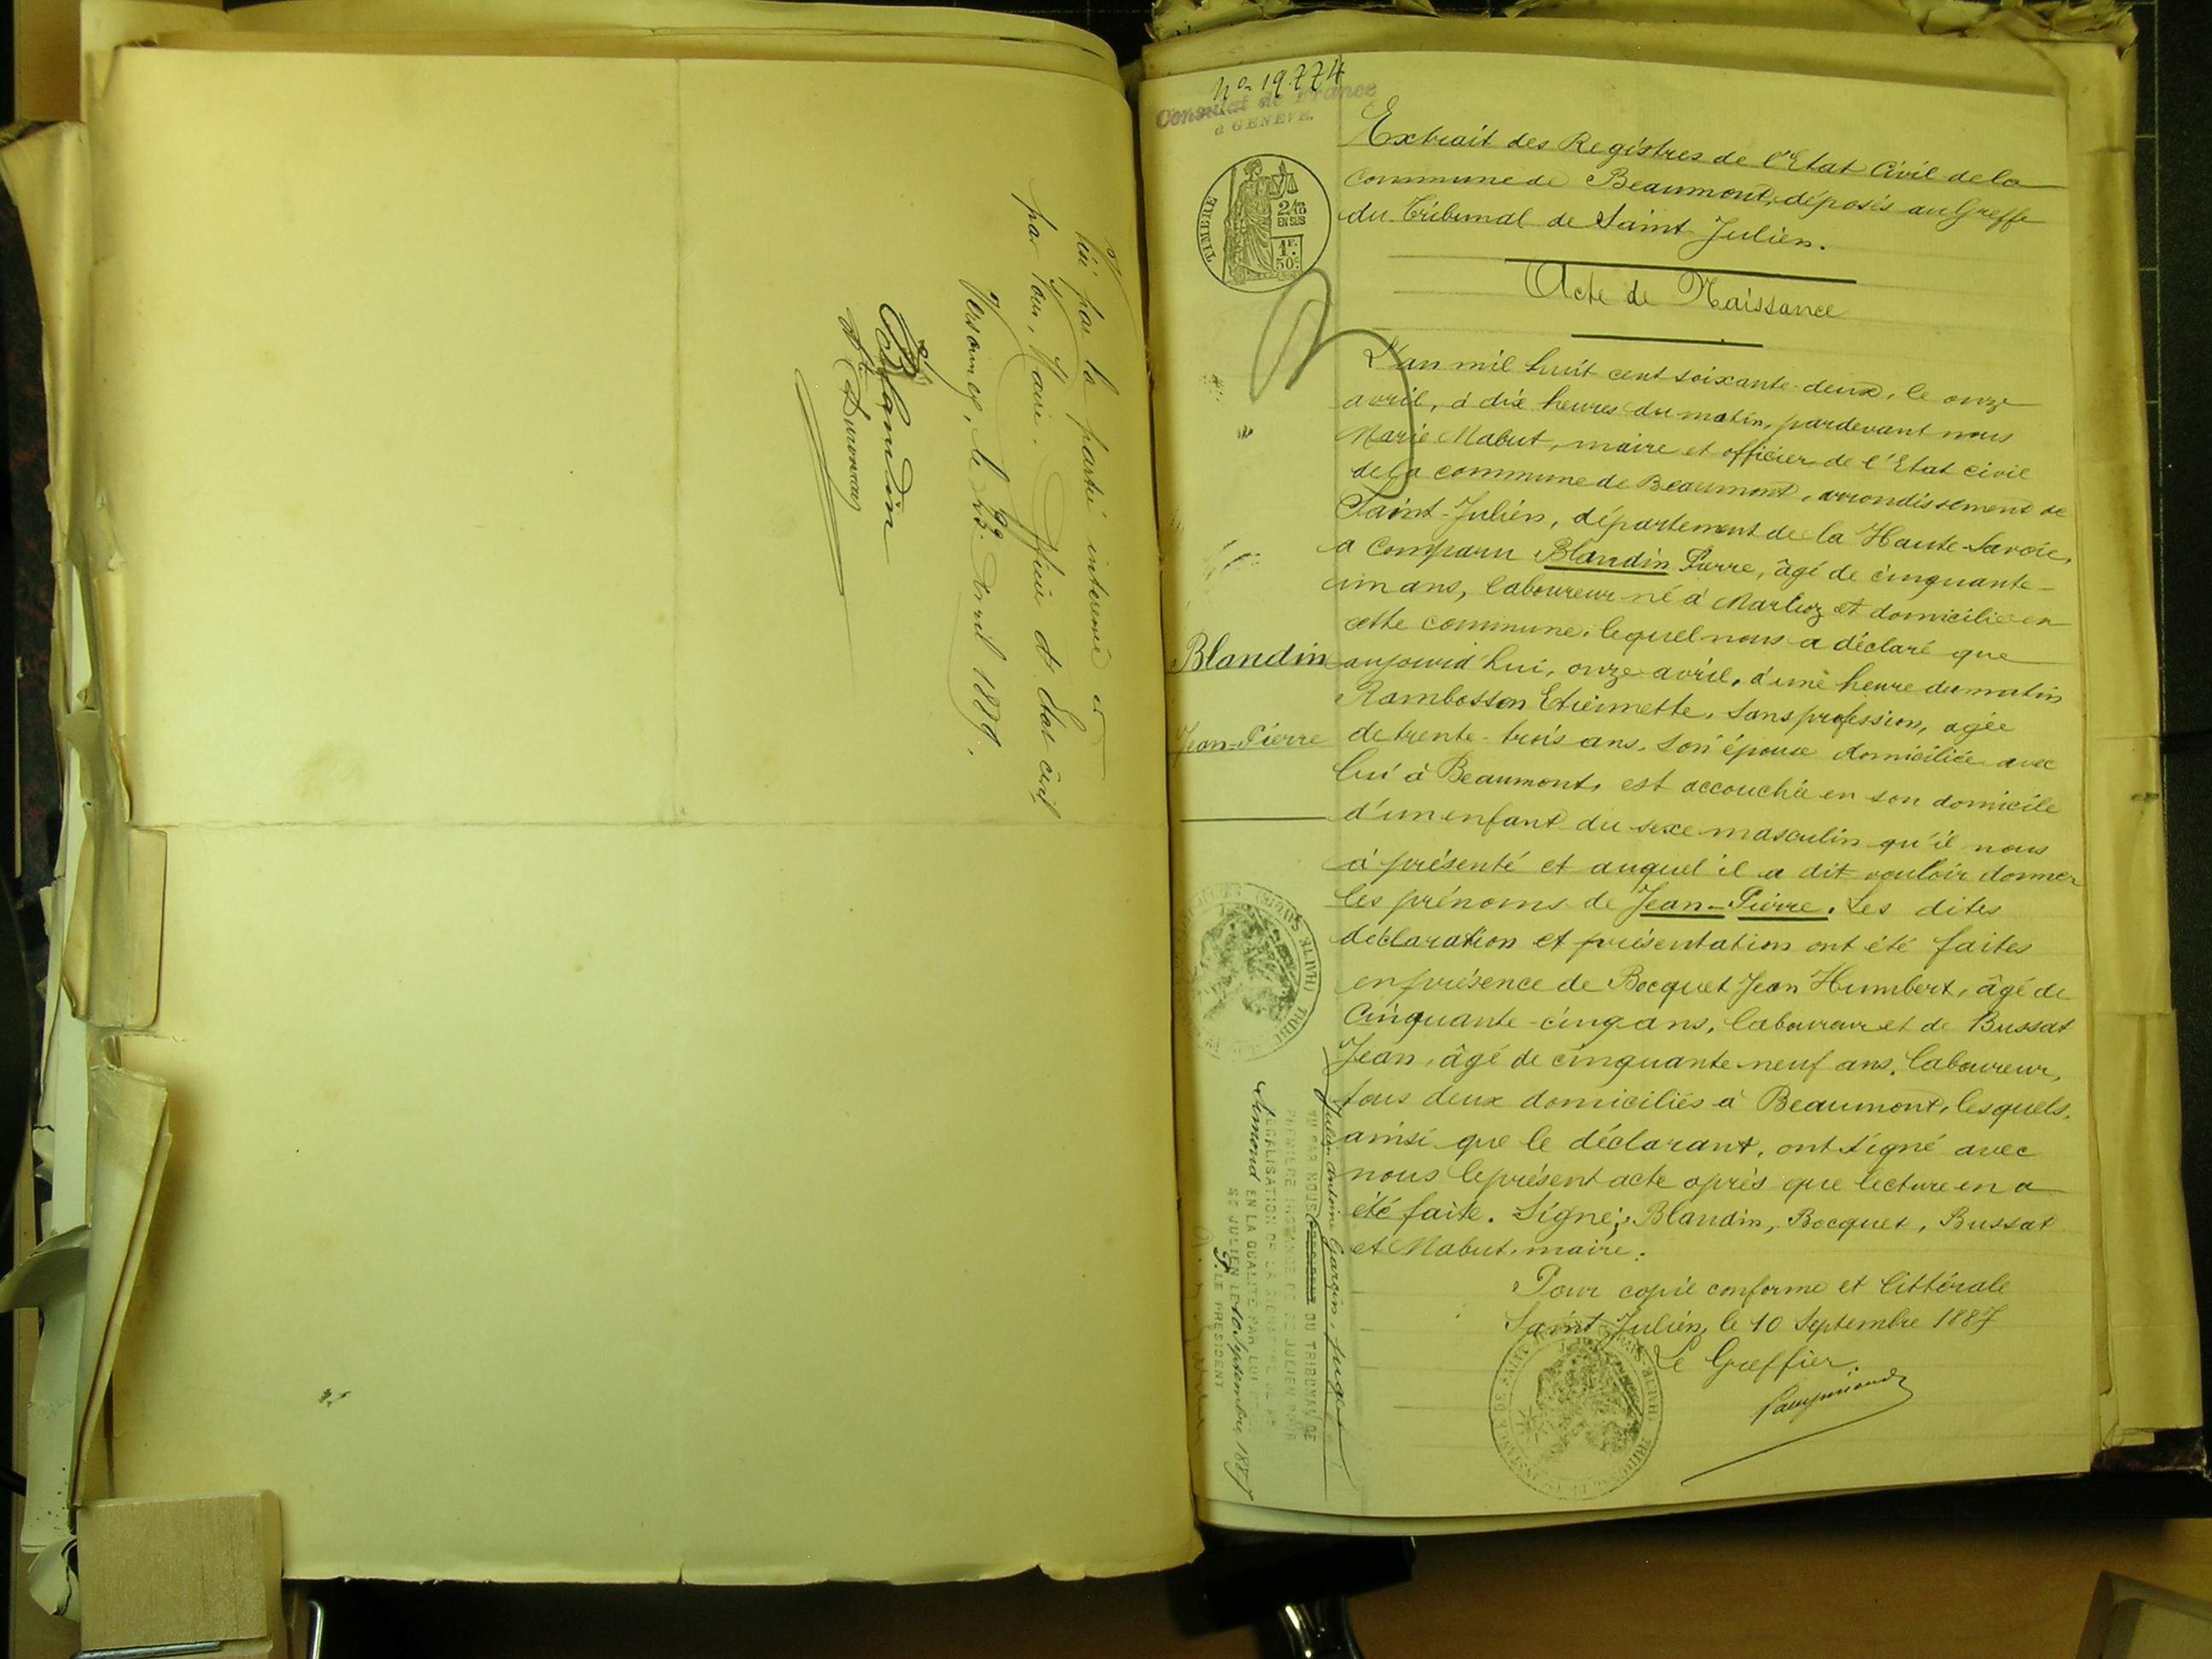 Visé par la partie intéressée et
par Nous, Maire. Officier d'Etat civil
Versonnex, le 23 Avril 1889.
Blandin
No 19.774
Consulat de France
à GENÈVE.
TIMBRE
2/10
EN SUS
1F.
50c
Extrait des Registres de l'Etat Civil de la
commune de Beaumont, déposés au Greffe
du Tribunal de Saint Julien.
Acte de Naissance
L'an mil huit cent soixante-deux, le onze
avril, à dix heures du matin, pardevant nous
Marie Mabut, maire et officier de l'Etat civil
de la commune de Beaumont, arrondissement de
Saint-Julien, département de la Haute-Savoie,
a comparu Blandin Pierre, âgé de cinquante-
un ans, laboureur né à Marlioz et domicilié en
cette commune, lequel nous a déclaré que
Blandin
aujourd'hui, onze avril, à une heure du matin
Rambosson Etiennette, sans profession, agée
Jean-Pierre
de trente-trois ans, son épouse domiciliée avec
lui à Beaumont, est accouchée en son domicile
d'un enfant du sexe masculin qu'il nous
a présenté et auquel il a dit vouloir donner
les prénoms de Jean-Pierre. Les dites
déclaration et présentation ont été faites
en présence de Bocquet Jean Humbert, âgé de
Cinquante-cinq ans, laboureur et de Bussat
Jean, âgé de cinquante-neuf ans, laboureur,
tous deux domiciliés à Beaumont, lesquels,
ainsi que le déclarant, ont signé avec
nous le présent acte après que lecture en a
été faite. Signé: Blandin, Bocquet, Bussat
et Mabut, maire.
Pour copie conforme et littérale
Saint Julien, le 10 Septembre 1887
Le Greffier.
Julien Antoine Garcin, juge
VU PAR NOUS PRESIDENT DU TRIBUNAL DE
PREMIERE INSTANCE DE ST JULIEN POUR
LEGALISATION DE LA SIGNATURE DE Mr
Simond EN LA QUALITE PAR LUI
ST JULIEN LE 10 Septembre 1887
P. LE PRESIDENT